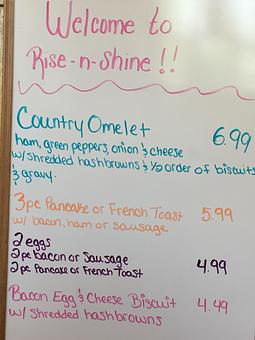 Welcome to
Rise-n-Shine!!
Country Omelet 6.99
ham, green peppers, onion & cheese
w/ shredded hashbrowns & 1/2 order of biscuits
& gravy.
3pc Pancake or French Toast 5.99
w/ bacon, ham or sausage
2 eggs
2pc bacon or Sausage 4.99
2pc Pancake or French Toast
Bacon Egg & Cheese Biscuit 4.49
w/ shredded hashbrowns